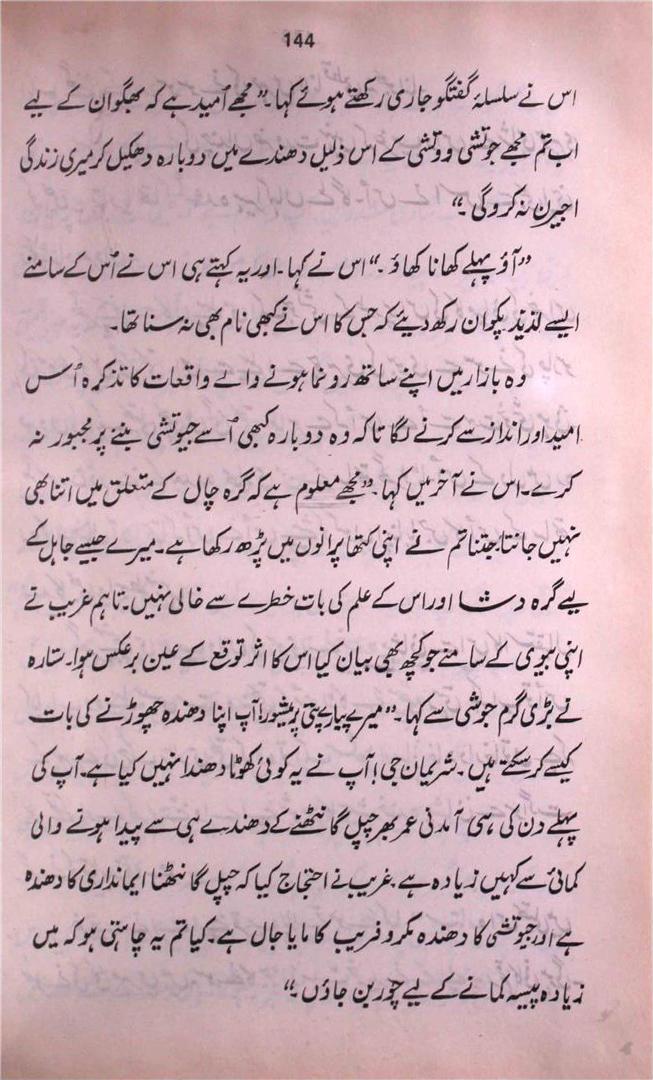 144
اس نے سلسلۂ گفتگو جاری رکھتے ہوئے کہا۔ ”مجھے اُمید ہے کہ بھگوان کے لیے
اب تم مجھے جوتشی ووتشی کے اس ذلیل دھندے میں دوبارہ دھکیل کر میری زندگی
اجیرن نہ کرو گی۔“
”آؤ پہلے کھانا کھاؤ۔“ اس نے کہا۔ اور یہ کہتے ہی اس نے اُس کے سامنے
ایسے لذیذ پکوان رکھ دیئے کہ جس کا اس نے کبھی نام بھی نہ سنا تھا۔
وہ بازار میں اپنے ساتھ رونما ہونے والے واقعات کا تذکرہ اُس
امید اور انداز سے کرنے لگا تاکہ وہ دوبارہ کبھی اُسے جیوتشی بننے پر مجبور نہ
کرے۔ اس نے آخر میں کہا۔ ”مجھے معلوم ہے کہ گرہ چال کے متعلق میں اتنا بھی
نہیں جانتا جتنا تم نے اپنی کتھا پرانوں میں پڑھ رکھا ہے۔ میرے جیسے جاہل کے
لیے گرہ دشا اور اس کے علم کی بات خطرے سے خالی نہیں۔ تاہم غریب نے
اپنی بیوی کے سامنے جو کچھ بھی بیان کیا اس کا اثر توقع کے عین برعکس ہوا۔ ستارہ
نے بڑی گرم جوشی سے کہا۔ ”میرے پیارے پتی پرمیشور! آپ اپنا دھندہ چھوڑنے کی بات
کیسے کر سکتے ہیں۔ شریمان جی! آپ نے یہ کوئی کھوٹا دھندا نہیں کیا ہے۔ آپ کی
پہلے دن کی ہی آمدنی عمر بھر چپل گانٹھنے کے دھندے ہی سے پیدا ہونے والی
کمائی سے کہیں زیادہ ہے۔ غریب نے احتجاج کیا کہ چپل گانٹھنا ایمانداری کا دھندہ
ہے اور جیوتشی کا دھندہ مکر و فریب کا مایا جال ہے۔ کیا تم یہ چاہتی ہو کہ میں
زیادہ پیسہ کمانے کے لیے چور بن جاؤں۔“